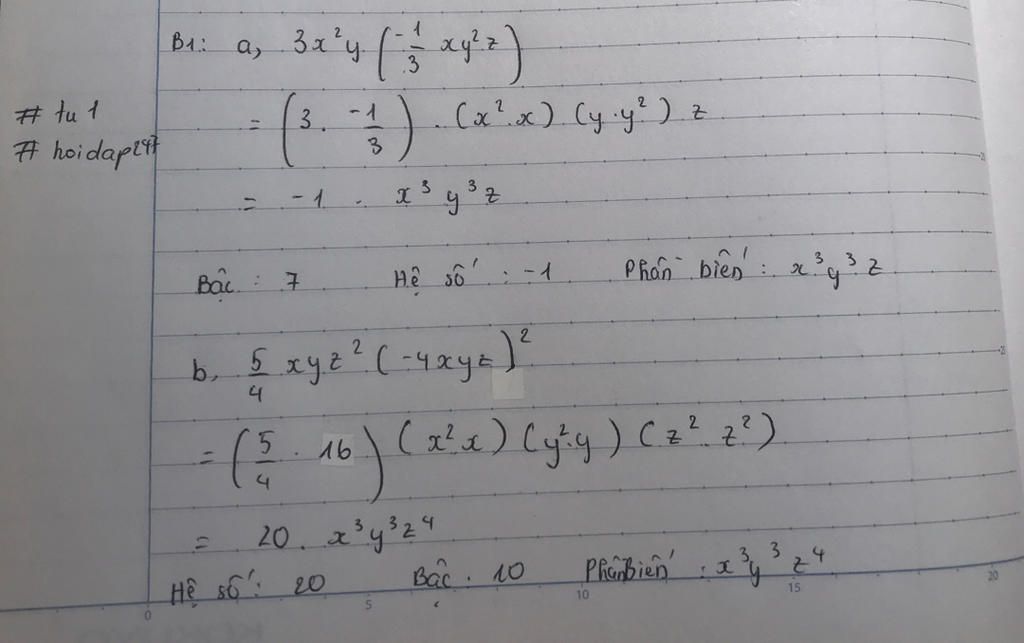 B1: a, 3x²y. (-1/3 xy²z)
# tu 1
= (3. -1/3) . (x².x) (y.y²) z
# hoidap247
= -1 . x³y³z
Bậc : 7 Hệ số : -1 Phần biến : x³y³z
b, 5/4 xyz² (-4xyz)²
= (5/4 . 16) (x².x) (y².y) (z². z²)
= 20. x³y³z⁴
Hệ số : 20 Bậc . 10 Phần Biến : x³y³z⁴
0 5 10 15 20